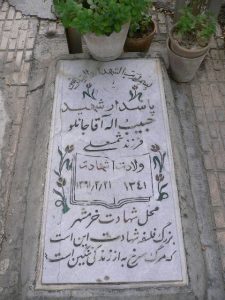 پاسدار شهید
حبیب اله آقاجانلو
فرزند شمسعلی
ولادت شهادت
۱۳۶۱/۲/۲۱ ۱۳۴۱
محل شهادت خرمشهر
بزرگ فلسفه شهادت این است
که مرگ سرخ به از زندگی ننگین است